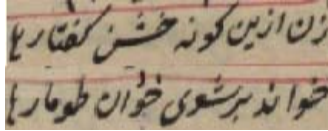 زن ازین کونه خشن کفتارها
خواند برشوی خوان طومارها